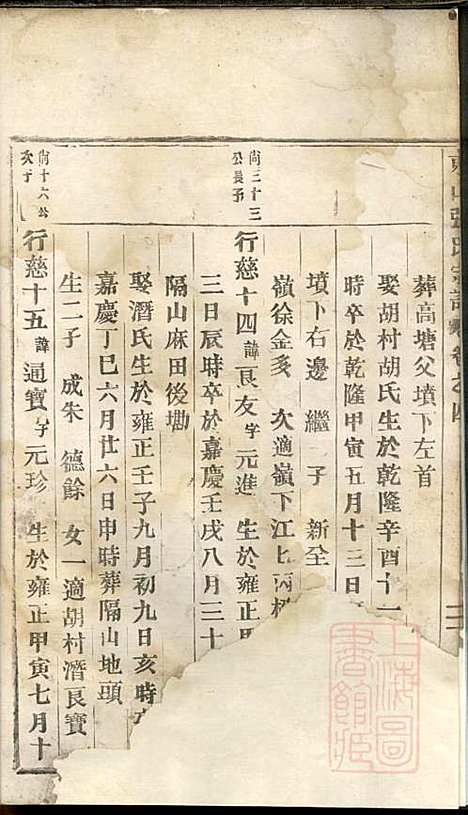 張氏宗譜 卷之四
葬高塘父墳下左首
娶胡村胡氏生於乾隆辛酉十一
時卒於乾隆甲寅五月十三日
墳下右邊 繼子 新全
嶺徐金多 次適嶺下江七
尚三十三公長子
行慈十四 諱艮友 字元進 生於雍正甲
三日辰時卒於嘉慶壬戌八月三十
隔山麻田後塝
娶潛氏生於雍正壬子九月初九日亥時
嘉慶丁巳六月廿六日申時葬隔山地頭
生二子 成朱 德餘 女一適胡村潛艮寶
尚十六公次子
行慈十五 諱通寶 字元珍 生於雍正甲寅七月十
上海圖書館藏